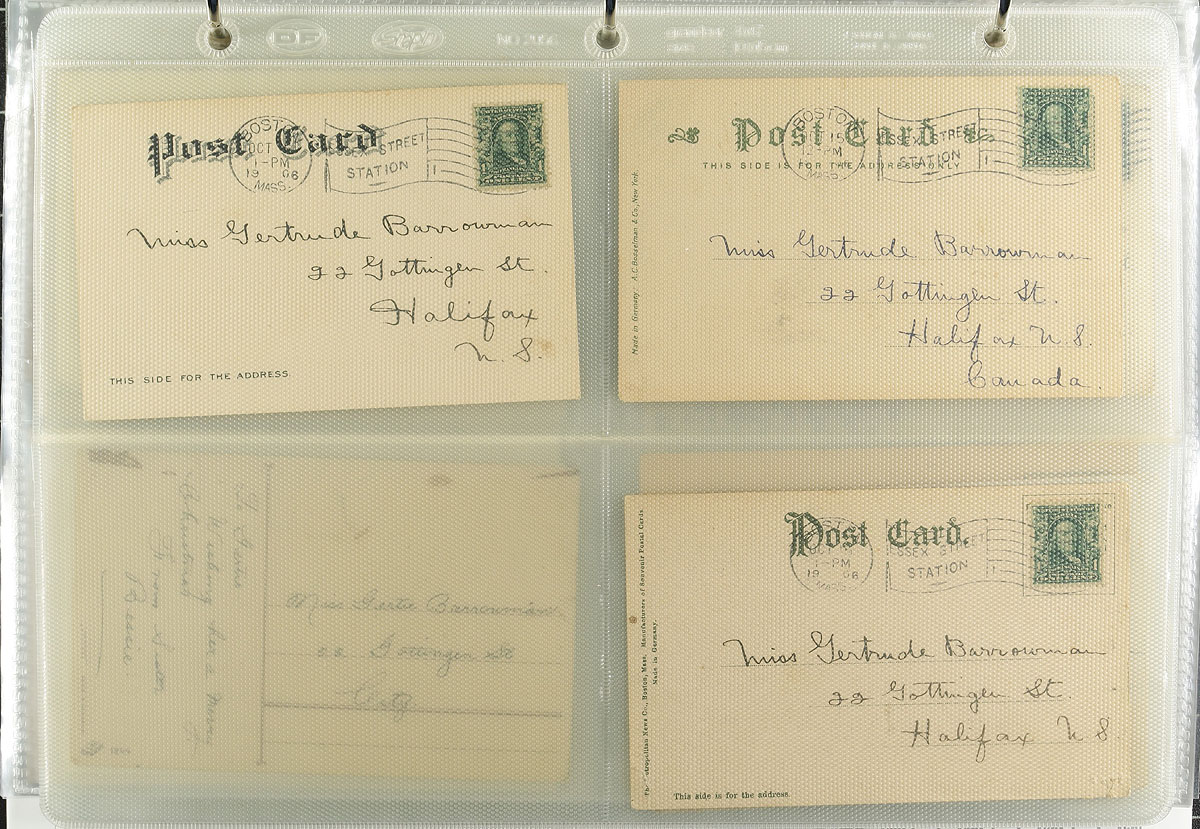 Post Card
BOSTON
OCT
1-PM
19 06
MASS.
ESSEX STREET
STATION
1
Miss Gertrude Barrowman
22 Gottingen St.
Halifax
N. S.
THIS SIDE FOR THE ADDRESS.
Post Card
THIS SIDE IS FOR THE ADDRESS ONLY
BOSTON
MASS.
STATION
1
Made in Germany. A.C. Bosselman & Co., New York.
Miss Gertrude Barrowman
22 Gottingen St.
Halifax N. S.
Canada.
Christmas
From
Bessie
Miss Gertie Barrowman
22 Gottingen St
City
Post Card.
1-PM
19 06
MASS.
ESSEX STREET
STATION
1
The Metropolitan News Co., Boston, Mass. Manufacturers of Souvenir Postal Cards
Made in Germany.
Miss Gertrude Barrowman
22 Gottingen St.
Halifax N S.
This side is for the address.